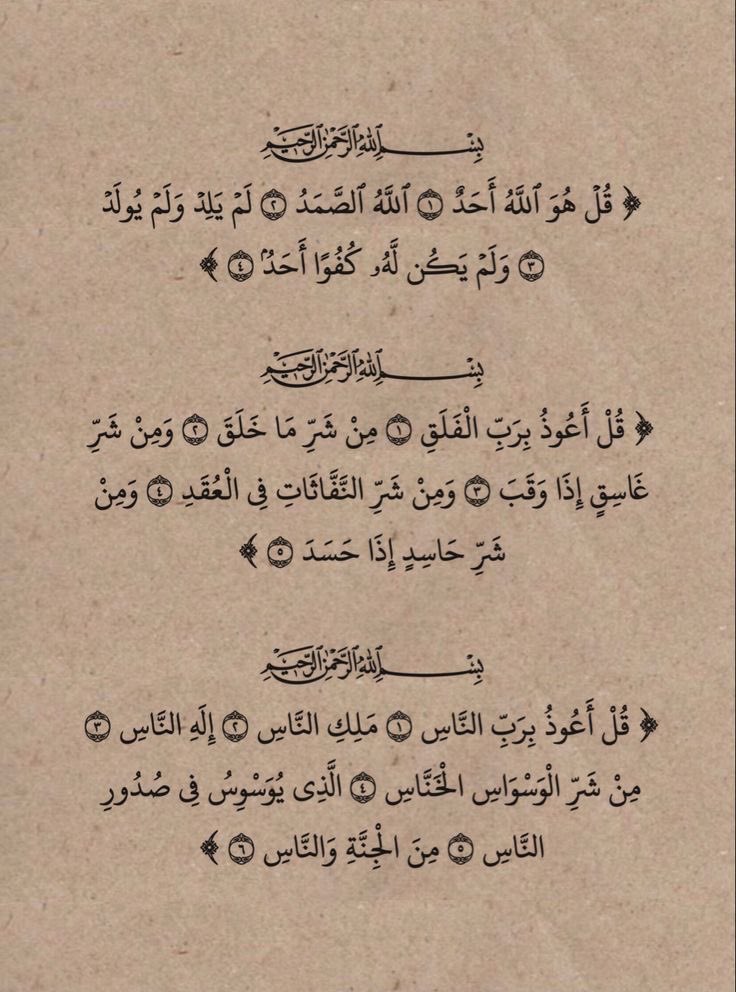 بِسْمِ ٱللَّهِ ٱلرَّحْمَٰنِ ٱلرَّحِيمِ
﴿ قُلْ هُوَ ٱللَّهُ أَحَدٌ ١ ٱللَّهُ ٱلصَّمَدُ ٢ لَمْ يَلِدْ وَلَمْ يُولَدْ
٣ وَلَمْ يَكُن لَّهُۥ كُفُوًا أَحَدٌۢ ٤ ﴾
بِسْمِ ٱللَّهِ ٱلرَّحْمَٰنِ ٱلرَّحِيمِ
﴿ قُلْ أَعُوذُ بِرَبِّ الْفَلَقِ ١ مِنْ شَرِّ مَا خَلَقَ ٢ وَمِنْ شَرِّ
غَاسِقٍ إِذَا وَقَبَ ٣ وَمِنْ شَرِّ النَّفَّاثَاتِ فِي الْعُقَدِ ٤ وَمِنْ
شَرِّ حَاسِدٍ إِذَا حَسَدَ ٥ ﴾
بِسْمِ ٱللَّهِ ٱلرَّحْمَٰنِ ٱلرَّحِيمِ
﴿ قُلْ أَعُوذُ بِرَبِّ النَّاسِ ١ مَلِكِ النَّاسِ ٢ إِلَهِ النَّاسِ ٣
مِنْ شَرِّ الْوَسْوَاسِ الْخَنَّاسِ ٤ الَّذِى يُوَسْوِسُ فِى صُدُورِ
النَّاسِ ٥ مِنَ الْجِنَّةِ وَالنَّاسِ ٦ ﴾